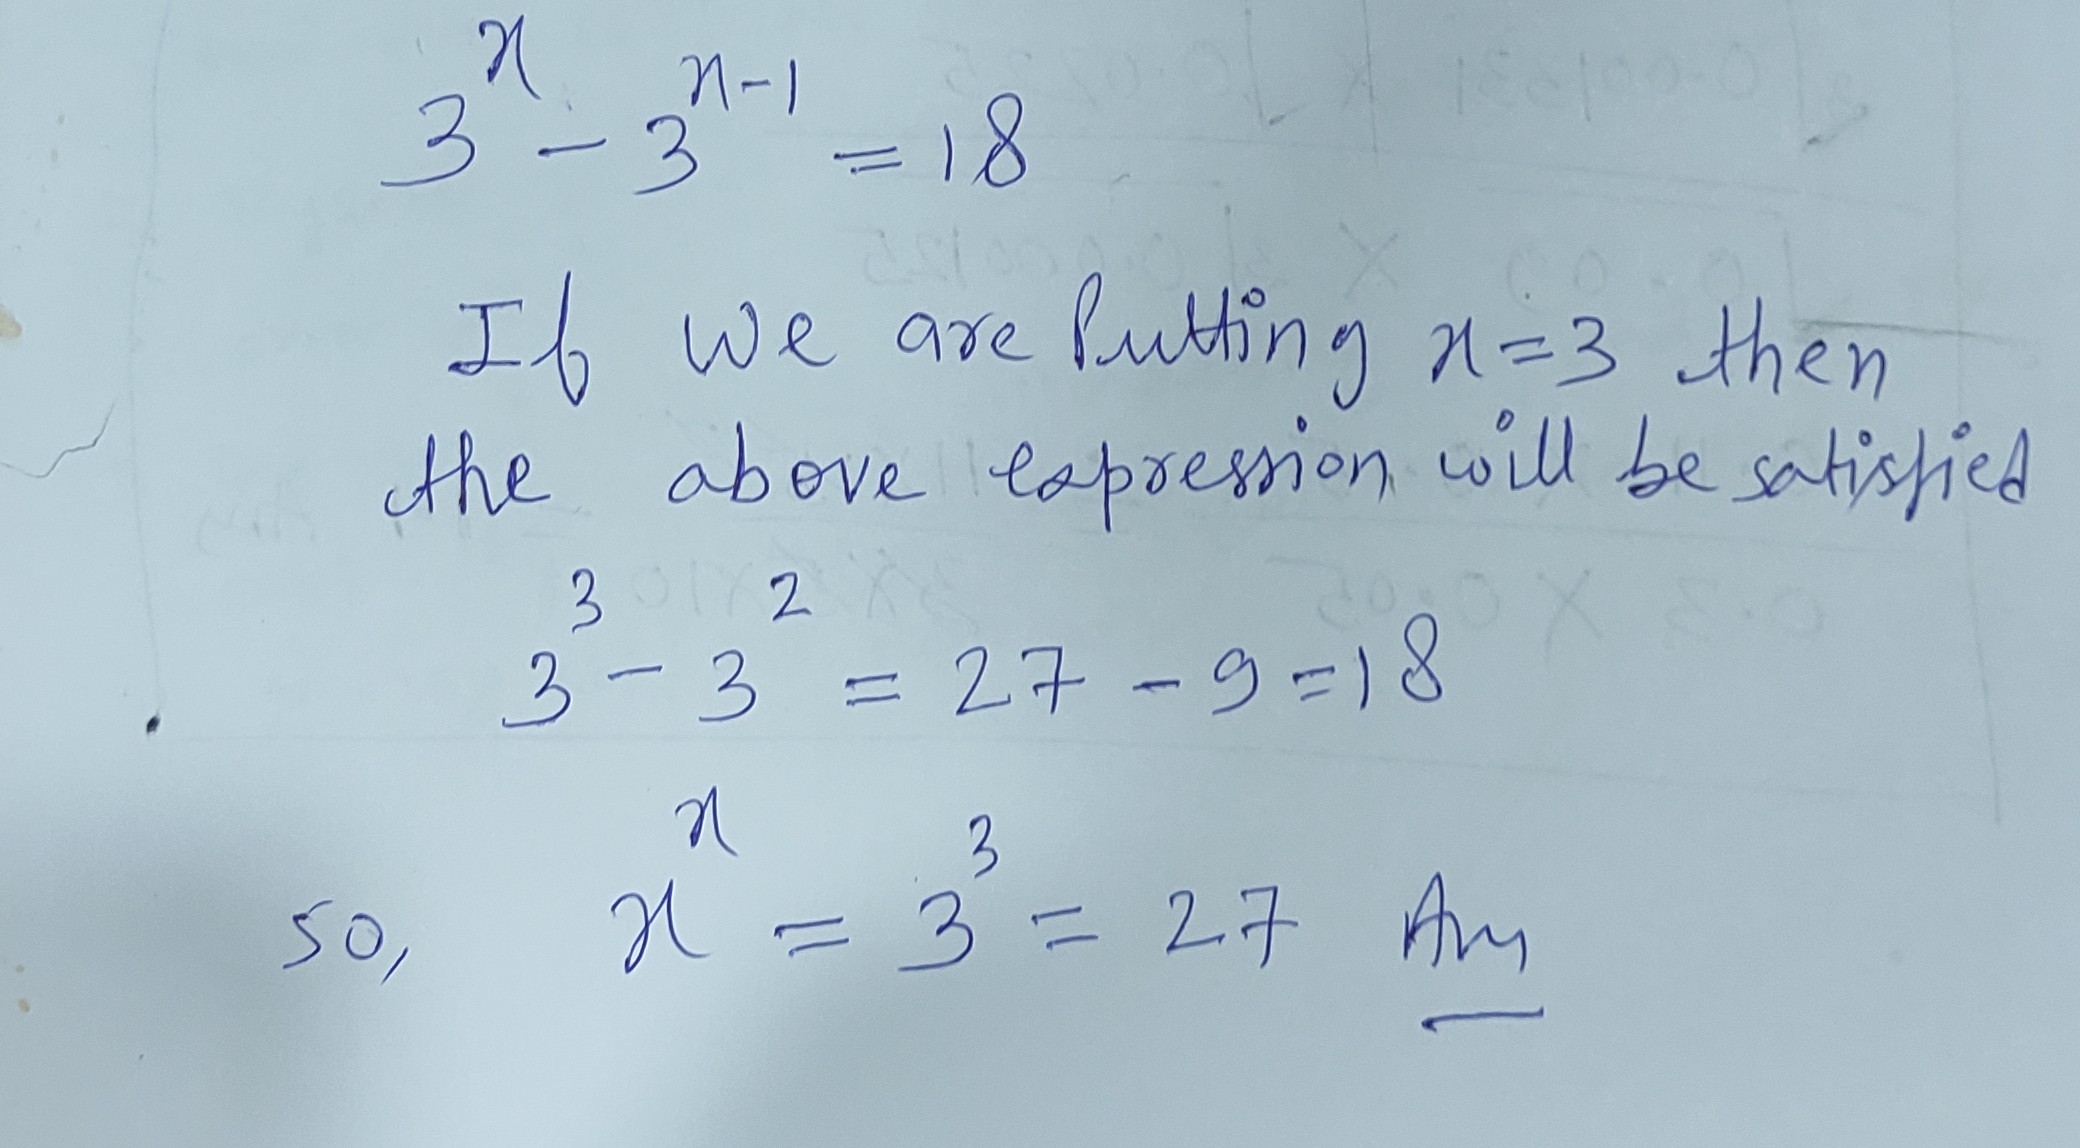 3^x - 3^{x-1} = 18
If we are Putting x=3 then
the above expression will be satisfied
3^3 - 3^2 = 27 - 9 = 18
so, x^x = 3^3 = 27 Ans